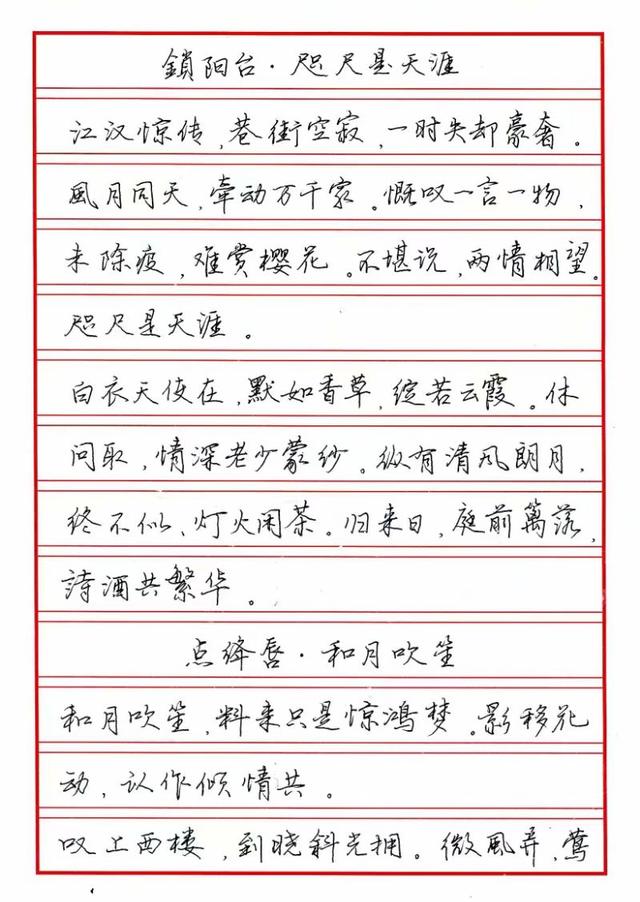 鎖阳台·咫尺是天涯
江汉惊传，巷街空寂，一时失却豪奢。
風月同天，牵动万千家。慨叹一言一物，
未除疫，难赏樱花。不堪说，两情相望。
咫尺是天涯。
白衣天使在，默如香草，绽若云霞。休
问取，情深老少蒙纱。纵有清风朗月，
终不似、灯火闲茶。归来日，庭前篱落，
詩酒共繁华。
点绛唇·和月吹笙
和月吹笙，料来只是惊鸿梦。影移花
动，认作倾情共。
叹上西楼，到晓斜光拥。微風弄，莺